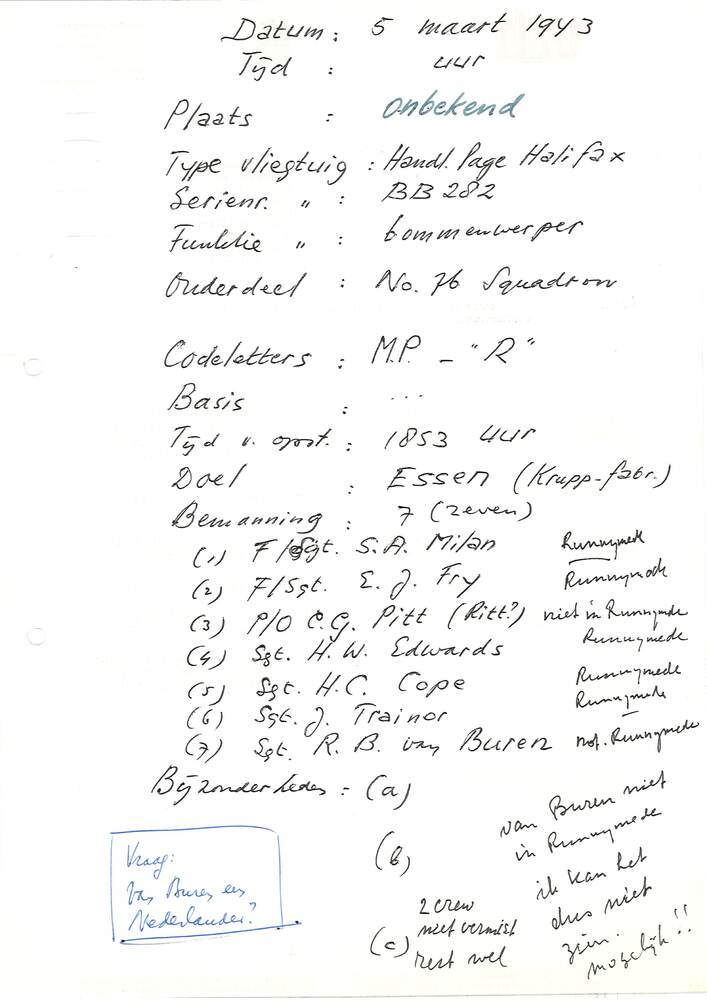 Datum : 5 maart 1943
Tijd : uur
Plaats : onbekend
Type vliegtuig : Handl. Page Halifax
Serienr. " : BB 282
Funktie " : bommenwerper
Onderdeel : No. 76 Squadron
Codeletters : M.P. – "R"
Basis : ...
Tijd v. opst. : 1853 uur
Doel : Essen (Krupp-fabr.)
Bemanning : 7 (zeven)
(1) F/Sgt. S.A. Milan Runnymede
(2) F/Sgt. E. J. Fry Runnymede
(3) P/O C.G. Pitt (Ritt?) niet in Runnymede
(4) Sgt. H.W. Edwards Runnymede
(5) Sgt. H.C. Cope Runnymede
(6) Sgt. J. Trainor Runnymede
(7) Sgt. R. B. van Buren not. Runnymede
Bijzonderhedes : (a)
van Buren niet
in Runnymede
(b)
ik kan het
dus niet
zien.
mogelijk!!
(c) 2 crew
niet vermist
rest wel
Vraag:
Van Buren een
Nederlander?